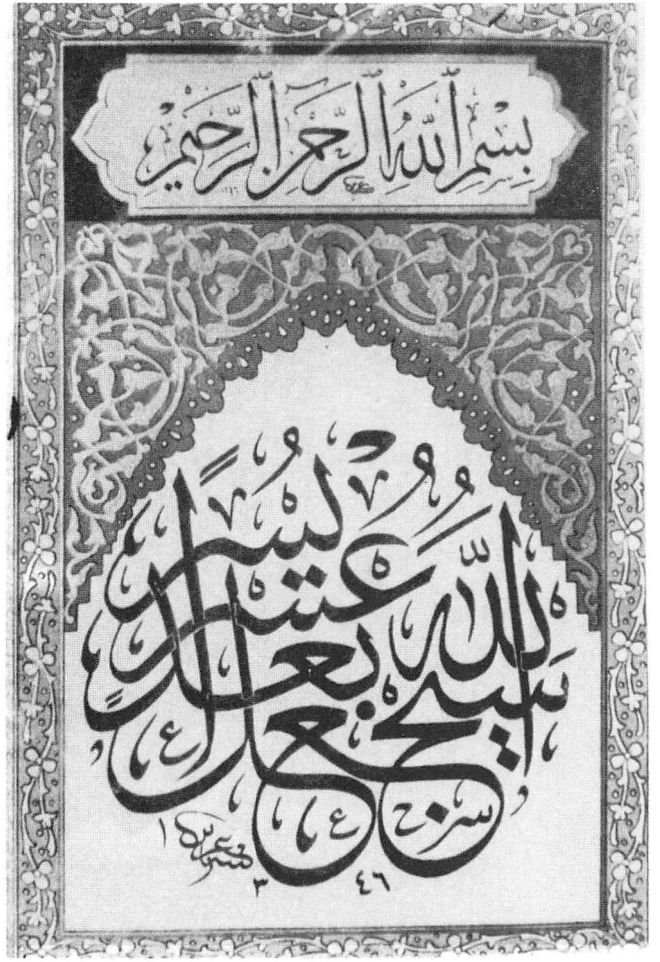 بِسْمِ ٱللَّهِ ٱلرَّحْمَنِ ٱلرَّحِيمِ
سَيَجْعَلُ ٱللَّهُ بَعْدَ عُسْرٍ يُسْرًا
١٣٤٦